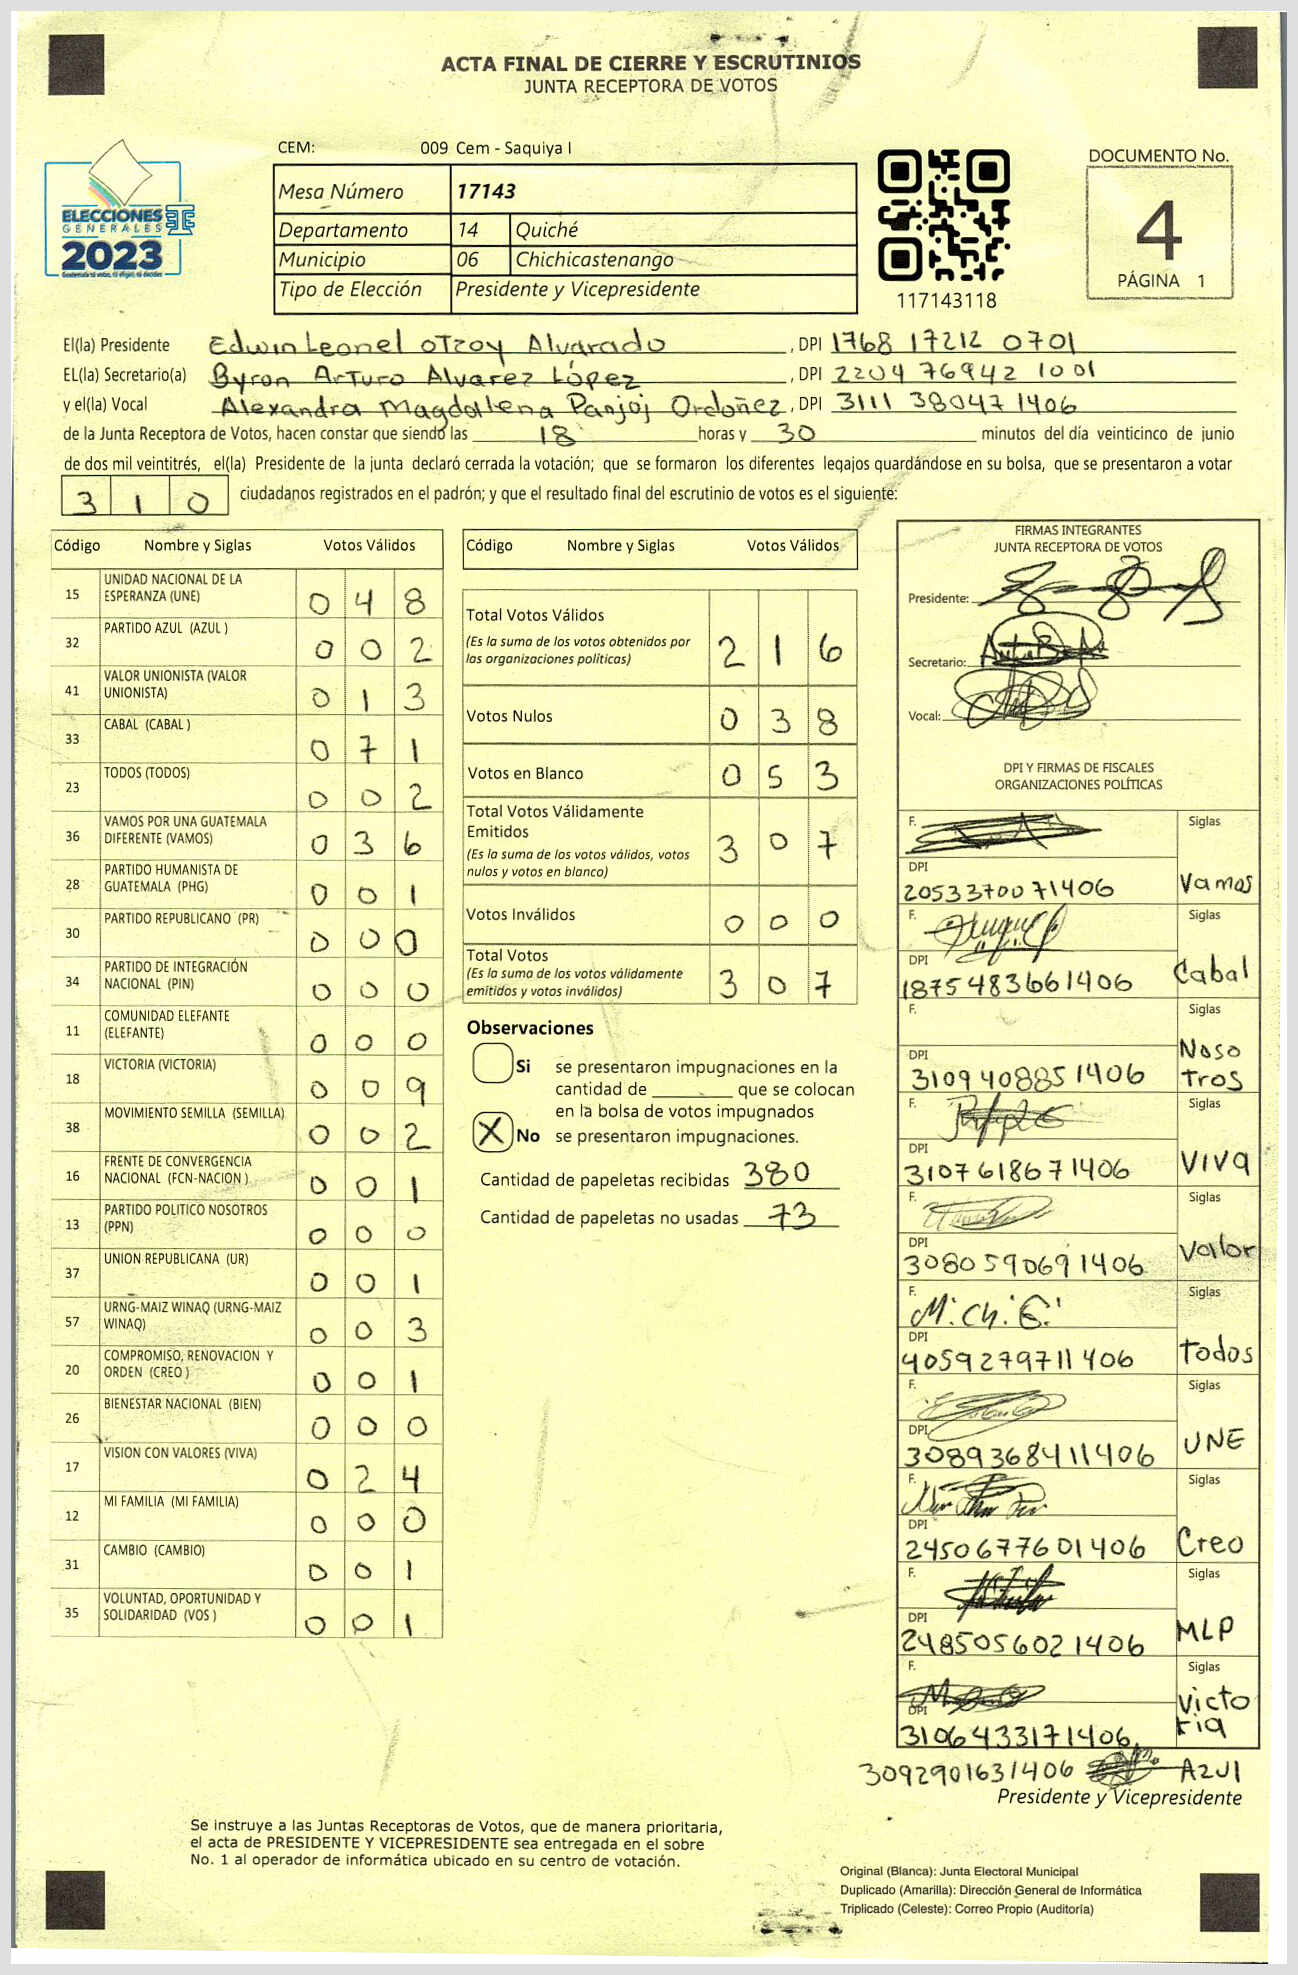 ACTA FINAL DE CIERRE Y ESCRUTINIOS
JUNTA RECEPTORA DE VOTOS
CEM: 009 Cem - Saquiya I
ELECCIONES
GENERALES
2023
Mesa Número 17143
Departamento 14 Quiché
Municipio 06 Chichicastenango
Tipo de Elección Presidente y Vicepresidente
117143118
DOCUMENTO No.
4
PÁGINA 1
El(la) Presidente Edwin Leonel OTzoy Alvarado, DPI 1768 17212 0701
EL(la) Secretario(a) Byron Arturo Alvarez López, DPI 2204 76942 1001
y el(la) Vocal Alexandra Magdallena Panjoj Ordoñez, DPI 3111 38047 1406
de la Junta Receptora de Votos, hacen constar que siendo las 18 horas y 30 minutos del día veinticinco de junio
de dos mil veintitrés, el(la) Presidente de la junta declaró cerrada la votación; que se formaron los diferentes legajos guardándose en su bolsa, que se presentaron a votar
3 1 0 ciudadanos registrados en el padrón; y que el resultado final del escrutinio de votos es el siguiente:
Código Nombre y Siglas Votos Válidos
15 UNIDAD NACIONAL DE LA ESPERANZA (UNE) 0 4 8
32 PARTIDO AZUL (AZUL ) 0 0 2
41 VALOR UNIONISTA (VALOR UNIONISTA) 0 1 3
33 CABAL (CABAL ) 0 7 1
23 TODOS (TODOS) 0 0 2
36 VAMOS POR UNA GUATEMALA DIFERENTE (VAMOS) 0 3 6
28 PARTIDO HUMANISTA DE GUATEMALA (PHG) 0 0 1
30 PARTIDO REPUBLICANO (PR) 0 0 0
34 PARTIDO DE INTEGRACIÓN NACIONAL (PIN) 0 0 0
11 COMUNIDAD ELEFANTE (ELEFANTE) 0 0 0
18 VICTORIA (VICTORIA) 0 0 9
38 MOVIMIENTO SEMILLA (SEMILLA) 0 0 2
16 FRENTE DE CONVERGENCIA NACIONAL (FCN-NACION ) 0 0 1
13 PARTIDO POLITICO NOSOTROS (PPN) 0 0 0
37 UNION REPUBLICANA (UR) 0 0 1
57 URNG-MAIZ WINAQ (URNG-MAIZ WINAQ) 0 0 3
20 COMPROMISO, RENOVACION Y ORDEN (CREO ) 0 0 1
26 BIENESTAR NACIONAL (BIEN) 0 0 0
17 VISION CON VALORES (VIVA) 0 2 4
12 MI FAMILIA (MI FAMILIA) 0 0 0
31 CAMBIO (CAMBIO) 0 0 1
35 VOLUNTAD, OPORTUNIDAD Y SOLIDARIDAD (VOS ) 0 0 1
Código Nombre y Siglas Votos Válidos
Total Votos Válidos 2 1 6
(Es la suma de los votos obtenidos por
las organizaciones políticas)
Votos Nulos 0 3 8
Votos en Blanco 0 5 3
Total Votos Válidamente
Emitidos 3 0 7
(Es la suma de los votos válidos, votos
nulos y votos en blanco)
Votos Inválidos 0 0 0
Total Votos 3 0 7
(Es la suma de los votos válidamente
emitidos y votos inválidos)
Observaciones
Si se presentaron impugnaciones en la
cantidad de ________ que se colocan
en la bolsa de votos impugnados
X No se presentaron impugnaciones.
Cantidad de papeletas recibidas 380
Cantidad de papeletas no usadas 73
FIRMAS INTEGRANTES
JUNTA RECEPTORA DE VOTOS
Presidente:
Secretario:
Vocal:
DPI Y FIRMAS DE FISCALES
ORGANIZACIONES POLÍTICAS
F. Siglas
DPI 2053370071406 Vamos
F. Siglas
DPI 1875483661406 Cabal
F. Siglas
DPI 3109408851406 Noso
tros
F. Siglas
DPI 3107618671406 VIVA
F. Siglas
DPI 3080590691406 Vallor
F. M. Ch. E. Siglas
DPI 4059279711406 Todos
F. Siglas
DPI 3089368411406 UNE
F. Siglas
DPI 2450677601406 Creo
F. Siglas
DPI 2485056021406 MLP
F. Siglas
DPI 3106433171406 Victo
ria
3092901631406 AZUl
Presidente y Vicepresidente
Se instruye a las Juntas Receptoras de Votos, que de manera prioritaria,
el acta de PRESIDENTE Y VICEPRESIDENTE sea entregada en el sobre
No. 1 al operador de informática ubicado en su centro de votación.
Original (Blanca): Junta Electoral Municipal
Duplicado (Amarilla): Dirección General de Informática
Triplicado (Celeste): Correo Propio (Auditoría)